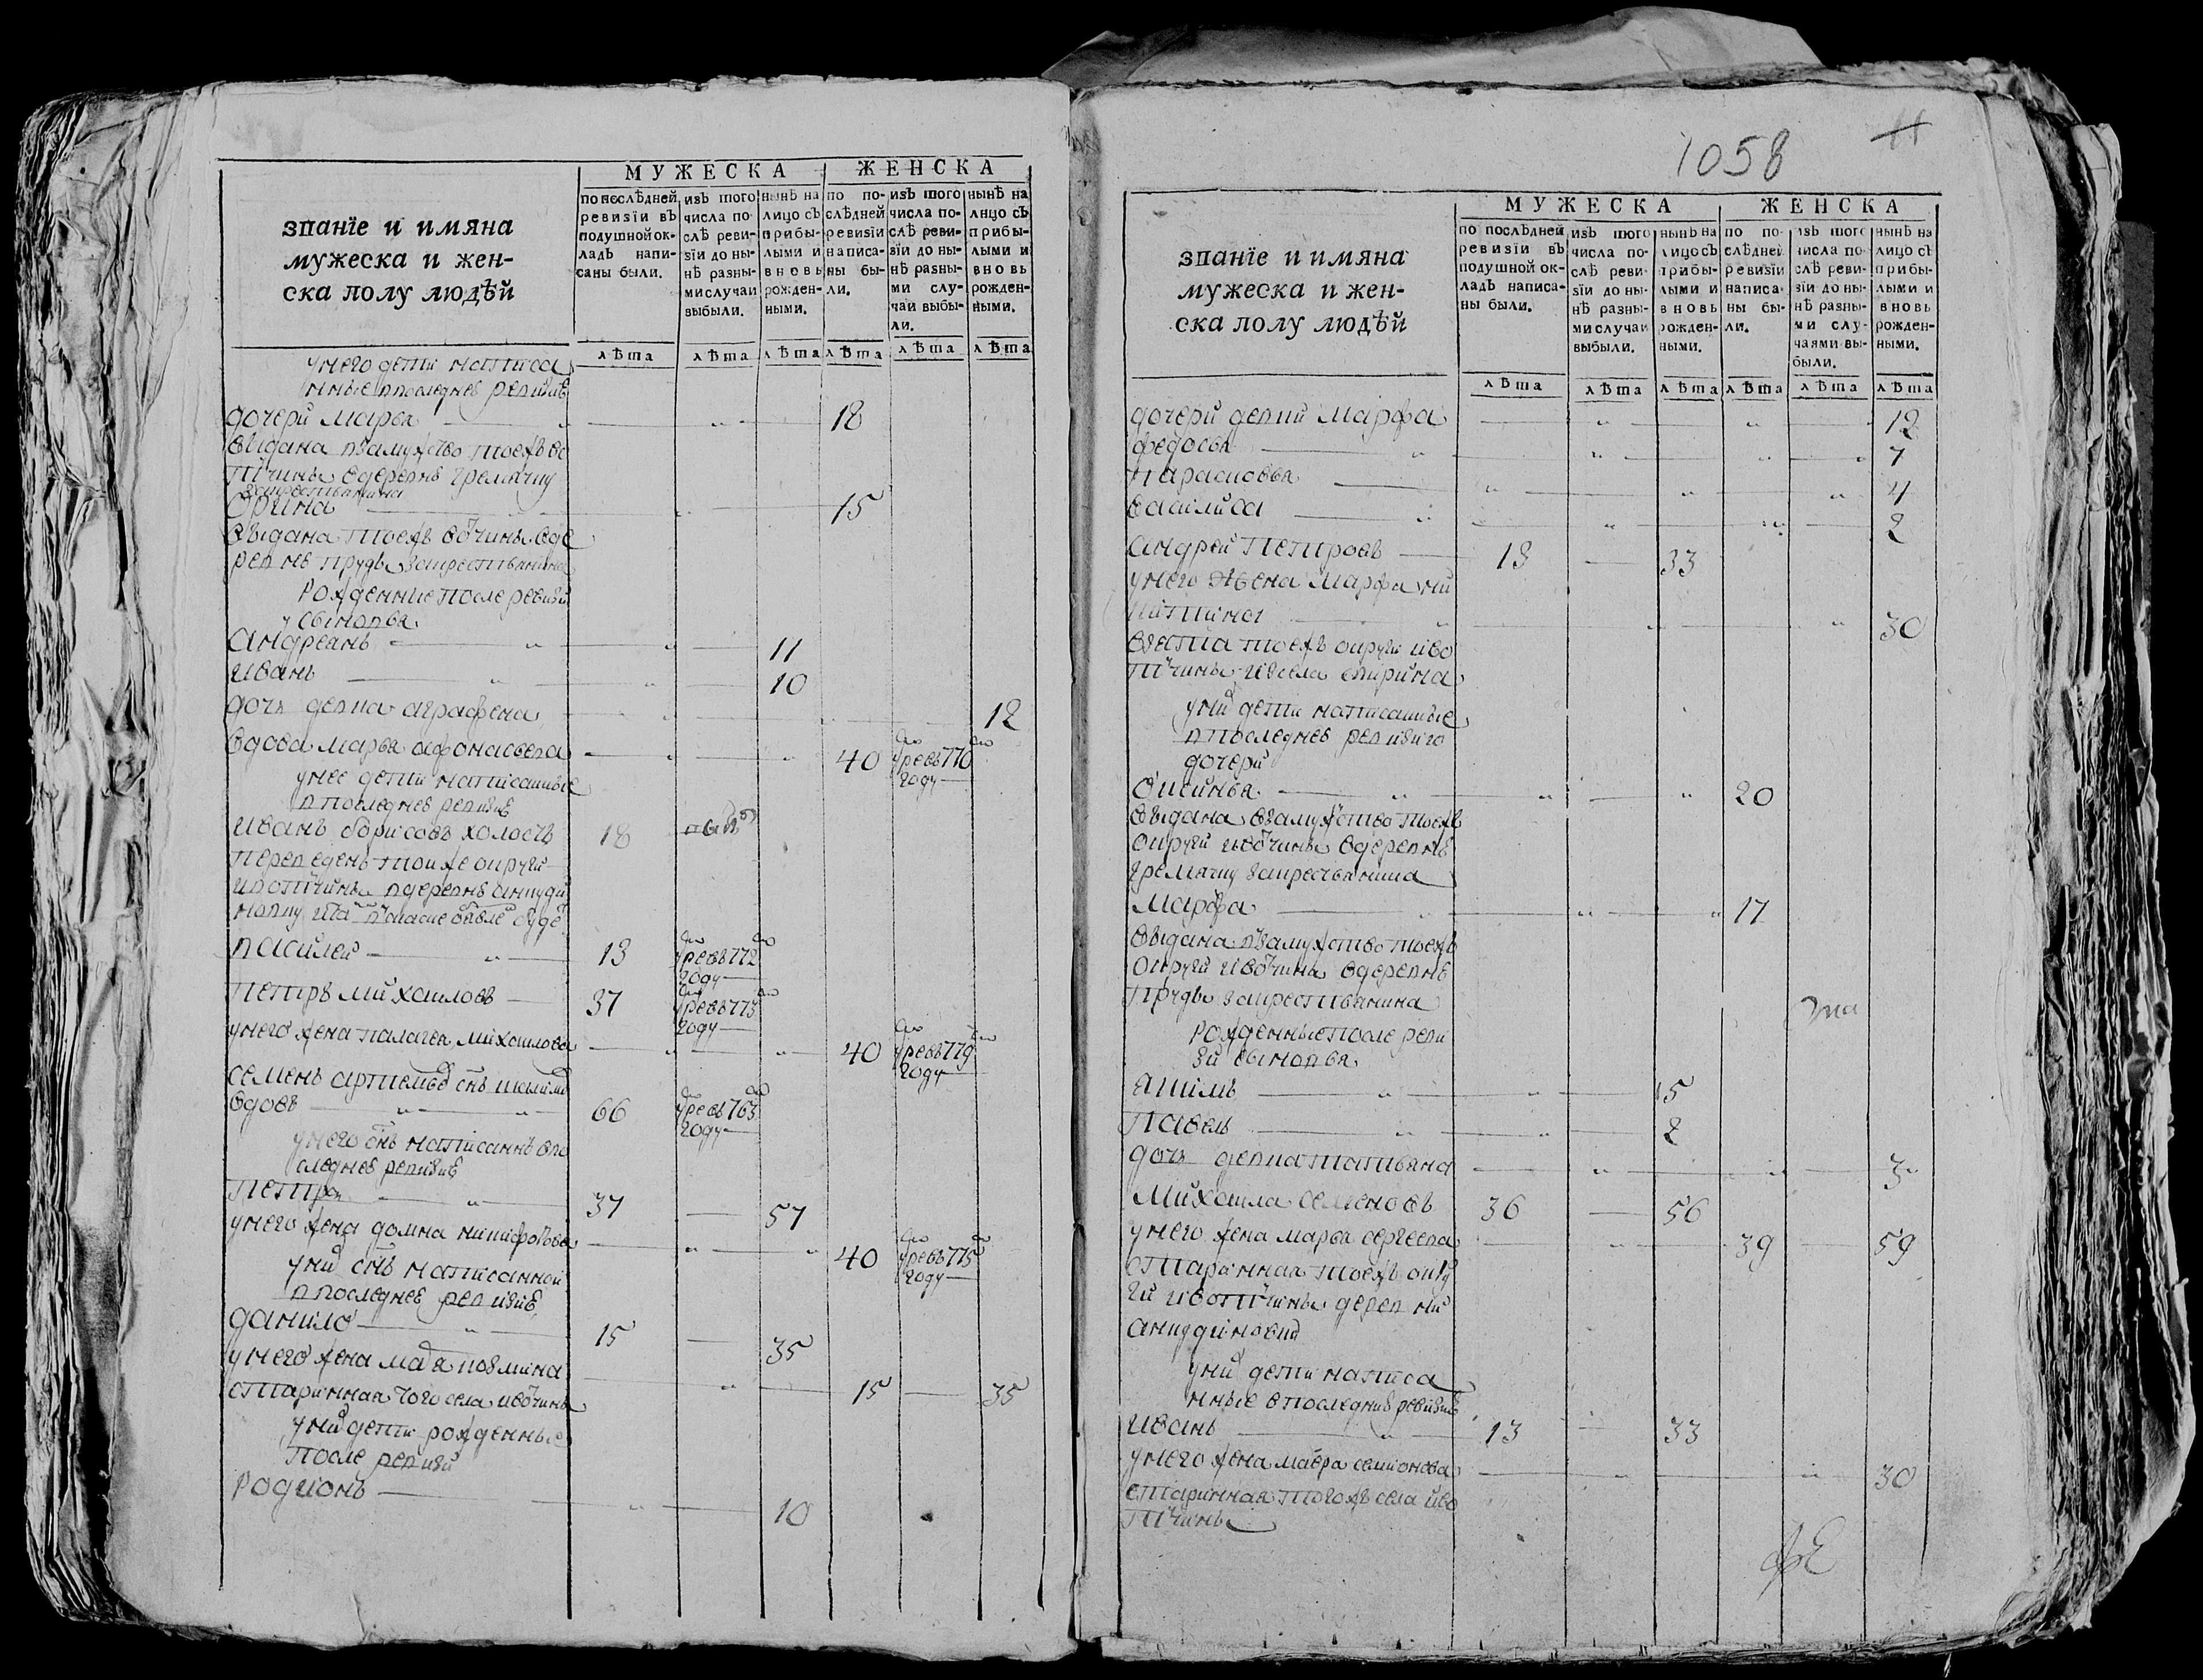 МУЖЕСКА ЖЕНСКА
званїе и имяна мужеска и женска полу людѣй
по послѣдней ревизїи въ подушной окладъ написаны были.
изъ того числа послѣ ревизїи до нынѣ разными случаи выбыли.
нынѣ на лицо съ прибылыми и вновь рожденными.
по послѣдней ревизїи написаны были.
изъ того числа послѣ ревизїи до нынѣ разными случаи выбыли.
нынѣ на лицо съ прибылыми и вновь рожденными.
лѣта лѣта лѣта лѣта лѣта лѣта
у него дети написа
нные впоследнеѣ ревизиѣ
дочери марья 18
выдана взамужство тоежъ во
тчины вдеревнѣ гремячку
закрестьянина
орина 15
выдана тоежъ вотчины вде
ревнѣ пруды закрестьянина
рожденные после ревизи
сыновья
андреянъ 11
иванъ 10
дочь девка аграфена 12
вдова марья афонасьева 40 умре въ 770 году
унее дети написанные
впоследнеѣ ревизиѣ
иванъ борисовъ холостъ 18
переведенъ тойже округи
ивотчины вдеревнѣ
василей 13 умре въ 772 году
петръ михайловъ 37 умре въ 775 году
унего жена палагея михайлова 40 умре въ 779 году
семенъ артемьевъ снъ
вдовъ 66 умре въ 763 году
унего снъ написаннъ впо
следнеѣ ревизиѣ
петръ 37 57
унего жена домна никифорова 40 умре въ 775 году
уних снъ написанной
впоследнеѣ ревизиѣ
данило 15 35
унего жена козмина 15 35
старинная того села ивотчины
уних дети рожденные
после ревизи
родионъ 10
1058
11
МУЖЕСКА ЖЕНСКА
званїе и имяна мужеска и женска полу людѣй
по послѣдней ревизїи въ подушной окладъ написаны были.
изъ того числа послѣ ревизїи до нынѣ разными случаи выбыли.
нынѣ на лицо съ прибылыми и вновь рожденными.
по послѣдней ревизїи написаны были.
изъ того числа послѣ ревизїи до нынѣ разными случаями выбыли.
нынѣ на лицо съ прибылыми и вновь рожденными.
лѣта лѣта лѣта лѣта лѣта лѣта
дочери девки марфа 12
федосья 7
парасковья 4
василиса 2
андрей петровъ 13 33
унего жена марфа ни
китина 30
взята тоежъ округи иво
тчины изсела спирина
уних дети написанные
впоследнеѣ ревизиго
дочери
аксинья 20
выдана взамужство тоежъ
округи ивотчины вдеревнѣ
гремячку закрестьянина
марфа 17
выдана взамужство тоежъ
округи ивотчины вдеревнѣ
пруды закрестьянина
рожденные после реви
зи сыновья
якимъ 5
павелъ 2
дочь девка татьяна 3
михаила семеновъ 36 56
унего жена марья сергеева 39 59
старинная тоежъ окру
ги ивотчины деревни
уних дети написа
нные впоследнеѣ ревизиѣ
иванъ 13 33
унего жена мавра семионова 30
старинная тогожъ села иво
тчины